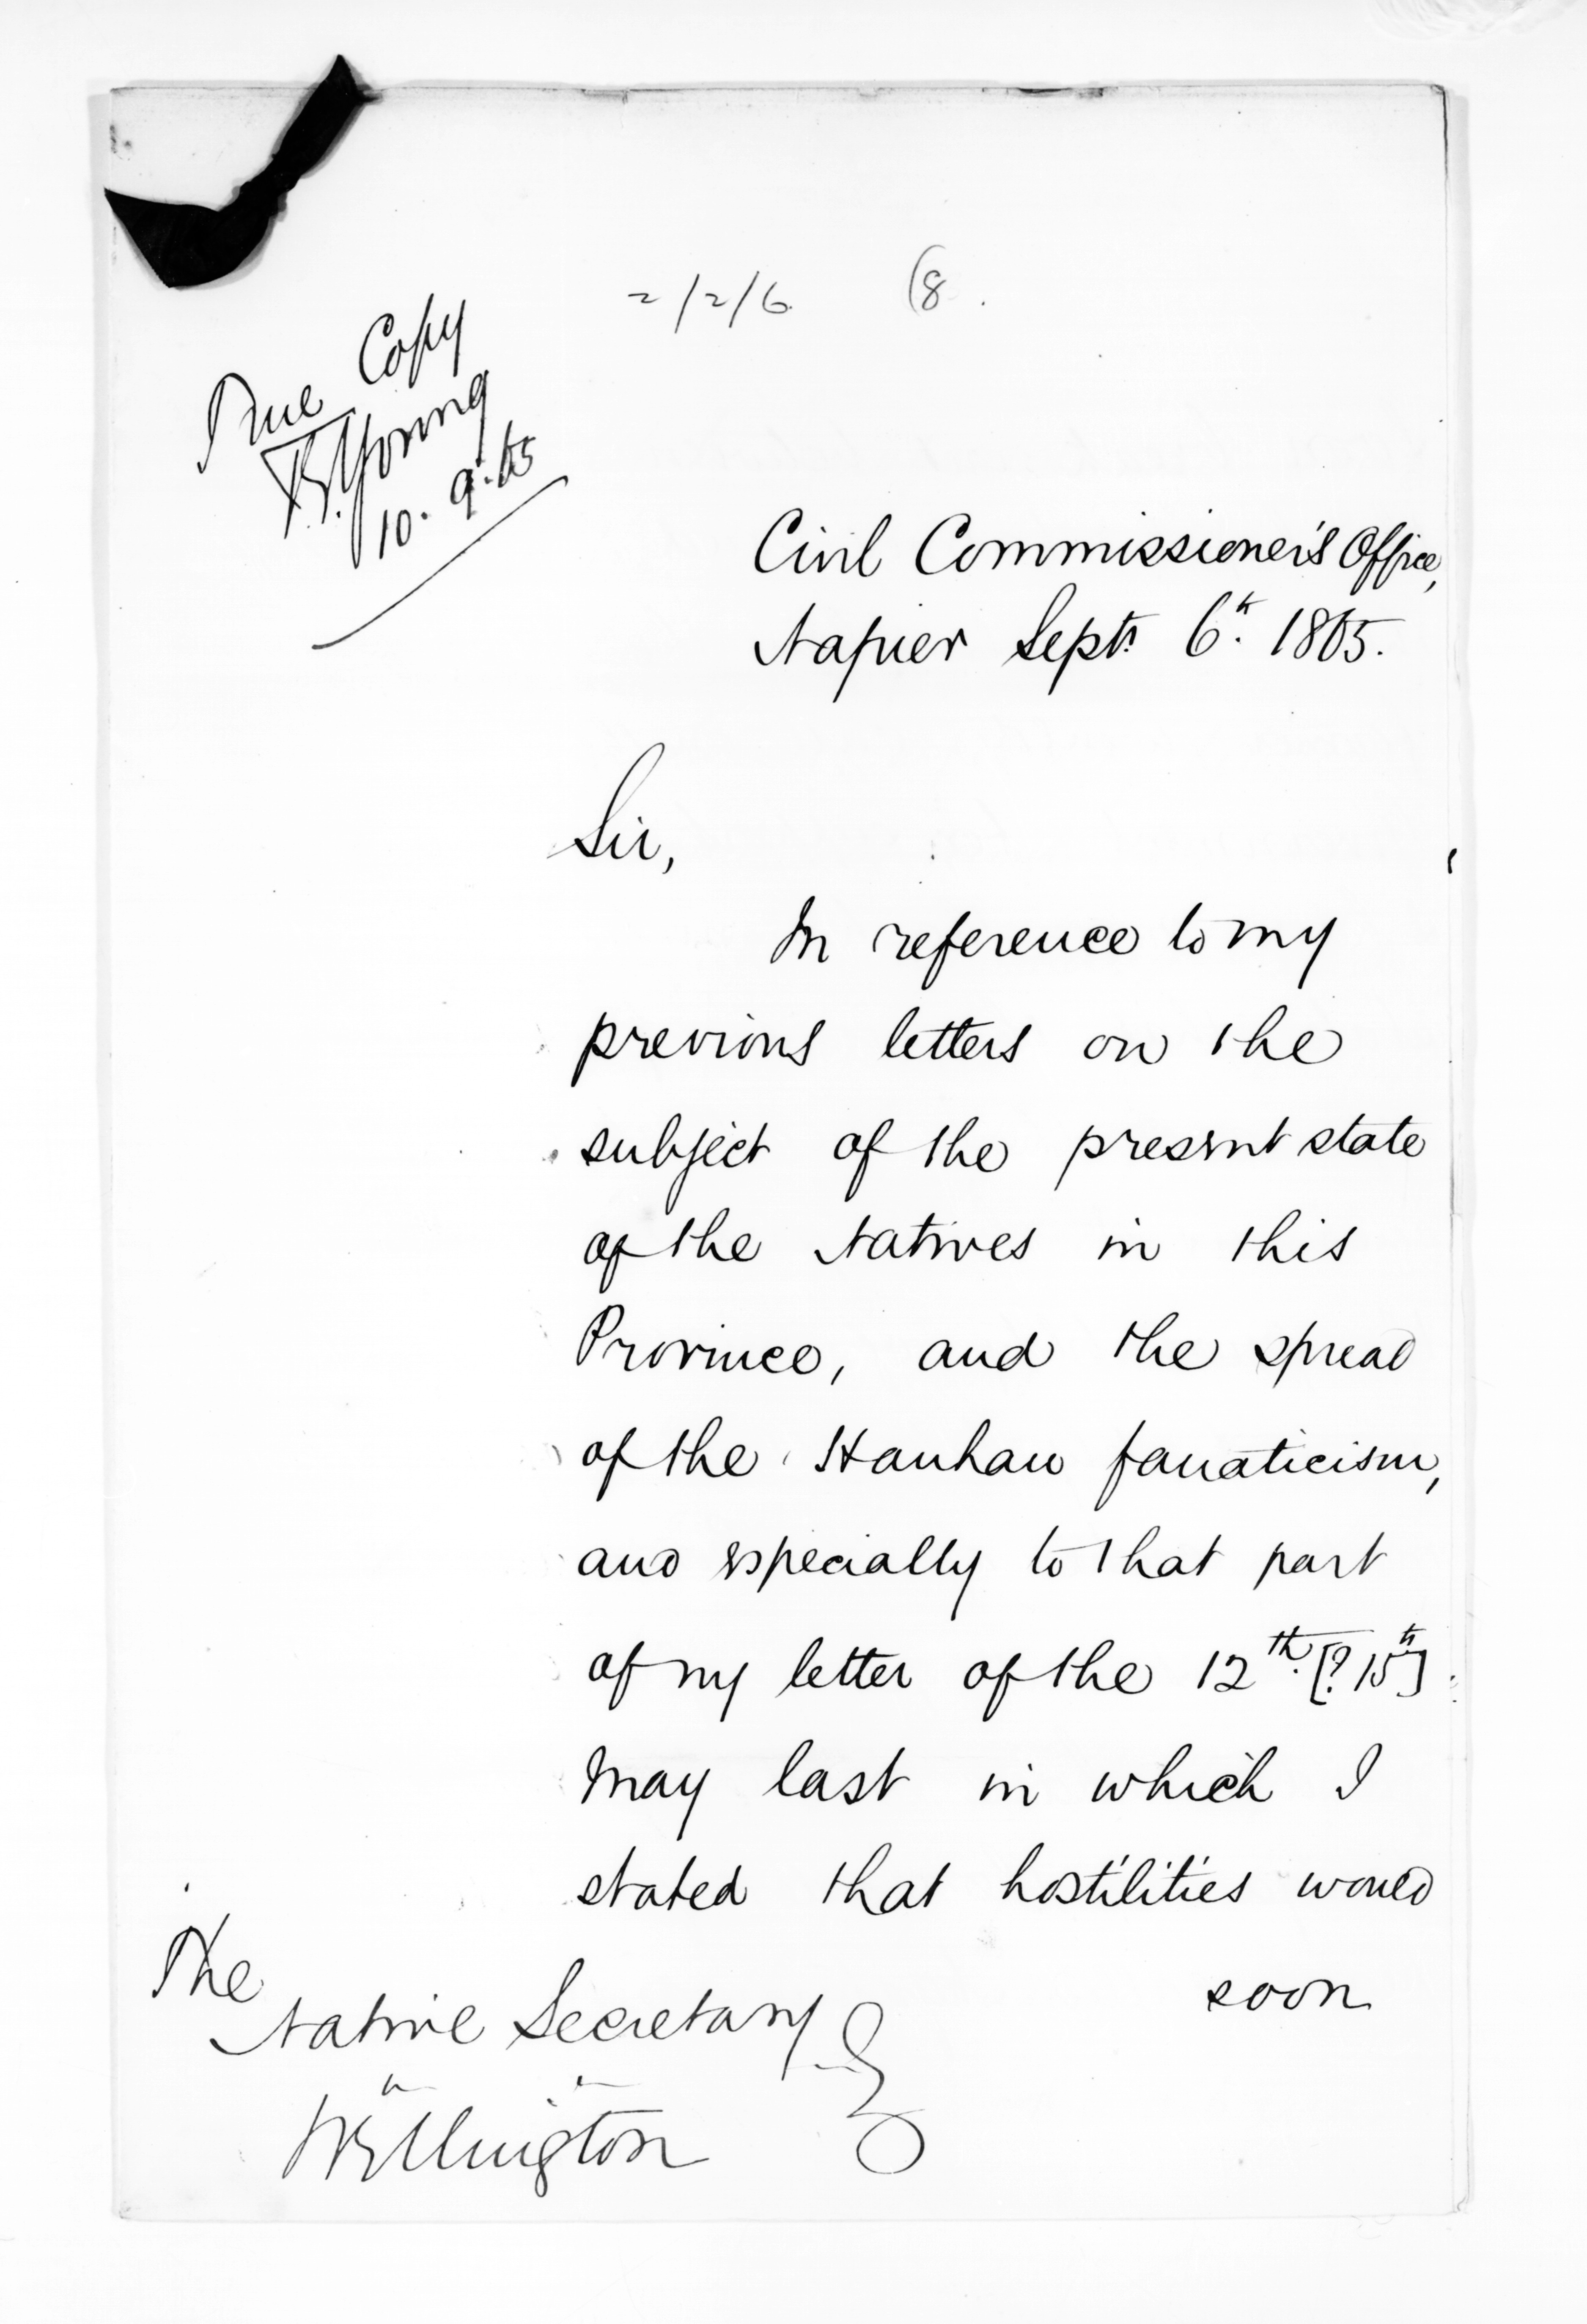 2/2/6 (8.
True Copy
Young
10.9.65
Civil Commissioner's Office,
Napier Septr. 6th. 1865.
Sir,
In reference to my
previous letters on the
subject of the present state
of the Natives in this
Province, and the spread
of the Hauhau fanaticism,
and especially to that part
of my letter of the 12th. [? 15th]
May last in which I
stated that hostilities would
soon
The
Native Secretary
Wellington